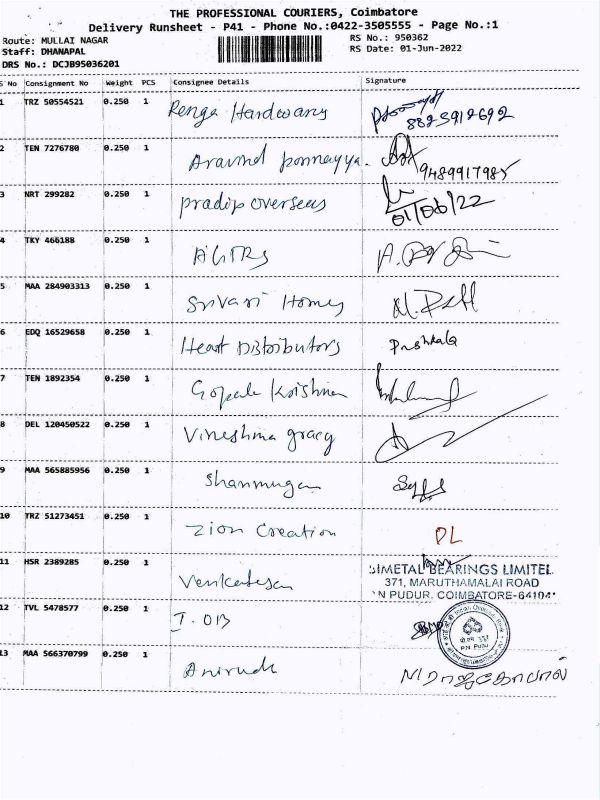 THE PROFESSIONAL COURIERS, Coimbatore
Delivery Runsheet - P41 - Phone No.:0422-3505555 - Page No.:1
Route: MULLAI NAGAR RS No.: 950362
Staff: DHANAPAL RS Date: 01-Jun-2022
DRS No.: DCJB95036201
S No Consignment No Weight PCS Consignee Details Signature
1 TRZ 50554521 0.250 1 Renga Hardwares
8825912692
2 TEN 7276780 0.250 1 Aravind ponnayya.
9489917985
3 NRT 299282 0.250 1 pradip overseas
01/06/22
4 TKY 466188 0.250 1
5 MAA 284903313 0.250 1 Srivari Homes
6 EDQ 16529658 0.250 1 Heart Distributors Pushkala
7 TEN 1892354 0.250 1 Gopala Krishnan
8 DEL 120450522 0.250 1 Vineshma gracy
9 MAA 565885956 0.250 1 Shanmugam
10 TRZ 51273451 0.250 1 Zion Creation DL
11 HSR 2389285 0.250 1 Venkatesan
BIMETAL BEARINGS LIMITED
371, MARUTHAMALAI ROAD
N PUDUR. COIMBATORE-64104
12 TVL 5478577 0.250 1 I.OB
13 MAA 566370799 0.250 1 Anirudh